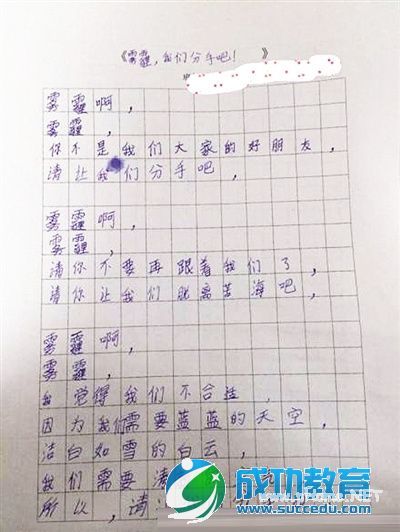 《雾霾，我们分手吧！ 》
雾霾啊，
雾霾，
你不是我们大家的好朋友，
请让我们分手吧，
雾霾啊，
雾霾，
请你不要再跟着我们了，
请你让我们脱离苦海吧，
雾霾啊，
雾霾，
我觉得我们不合适，
因为我们需要蓝蓝的天空，
洁白如雪的白云，
我们需要清
所以，请
成功教育
CGJOEDU.COM